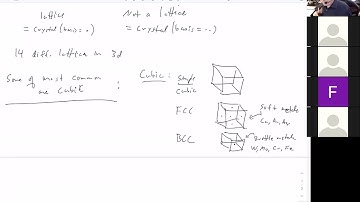 lattice
Not a lattice
= Crystal (basis = .)
= Crystal (basis = ..)
14 diff. lattices in 3d
Some of most common are Cubic :
Cubic : simple cubic
FCC
Soft metals
Cu, Au,
BCC
Brittle metals
W, Mo, Cr, Fe
F